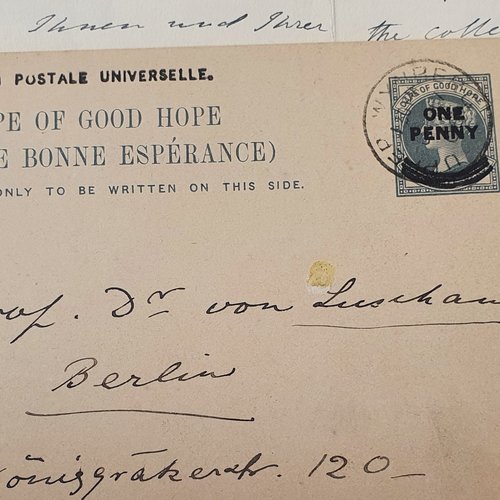 Ihnen und Ihrer the colle
POSTALE UNIVERSELLE.
PE OF GOOD HOPE
E BONNE ESPÉRANCE)
ONLY TO BE WRITTEN ON THIS SIDE.
OF GOOD HOPE
ONE
PENNY
rof. Dr von Luschan
Berlin
Königgräkerstr. 120-